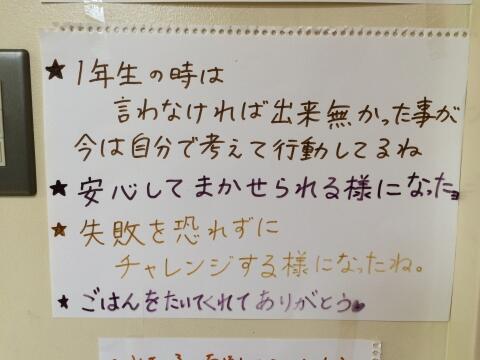 ★ 1年生の時は
言わなければ出来無かった事が
今は自分で考えて行動してるね
★ 安心してまかせられる様になったョ
★ 失敗を恐れずに
チャレンジする様になったね。
★ ごはんをたいてくれてありがとう♥